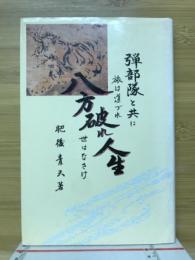 弾部隊と共に
旅は道づれ
八方破れ人生
世はなさけ
肥後青天著